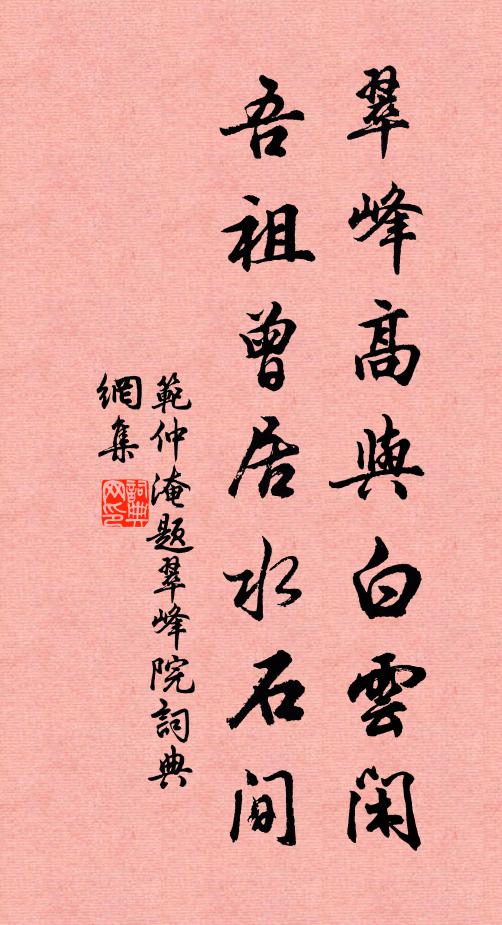 翠峰高與白雲閑
吾祖曾居水石間
範仲淹題翠峰院詞典
網集
詞典網印